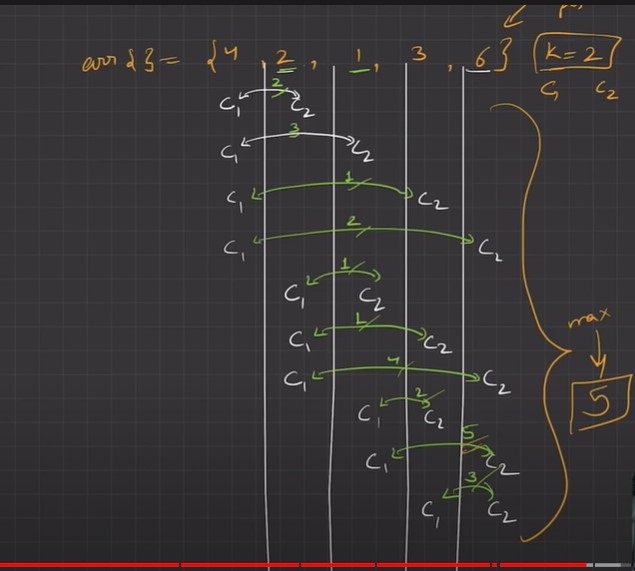 arr{} = {4, 2, 1, 3, 6} K=2
C₁ C₂
C₁ 2 C₂
C₁ 3 C₂
C₁ 1 C₂
C₁ 2 C₂
C₁ 1 C₂
C₁ 1 C₂
C₁ 4 C₂
max
C₁ 2 C₂
5
C₁ 5 C₂
C₁ 3 C₂